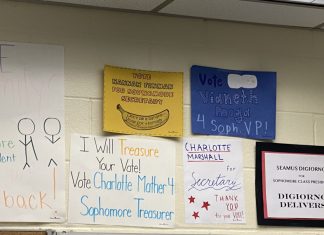 E
ore
dent
back!
VOTE
HANNAH FINMAN
FOR SOPHOMORE
SECRETARY
Vote
4 Soph VP!
I Will Treasure
Your Vote!
Vote Charlotte Mather 4
Sophomore Treasurer
CHARLOTTE
MARSHALL
for
Secretary
THANK
YOU
for your VOTE!
SEAMUS DIGIORNO
FOR SOPHOMORE CLASS PRESIDENT
DIGIORNO
DELIVERS